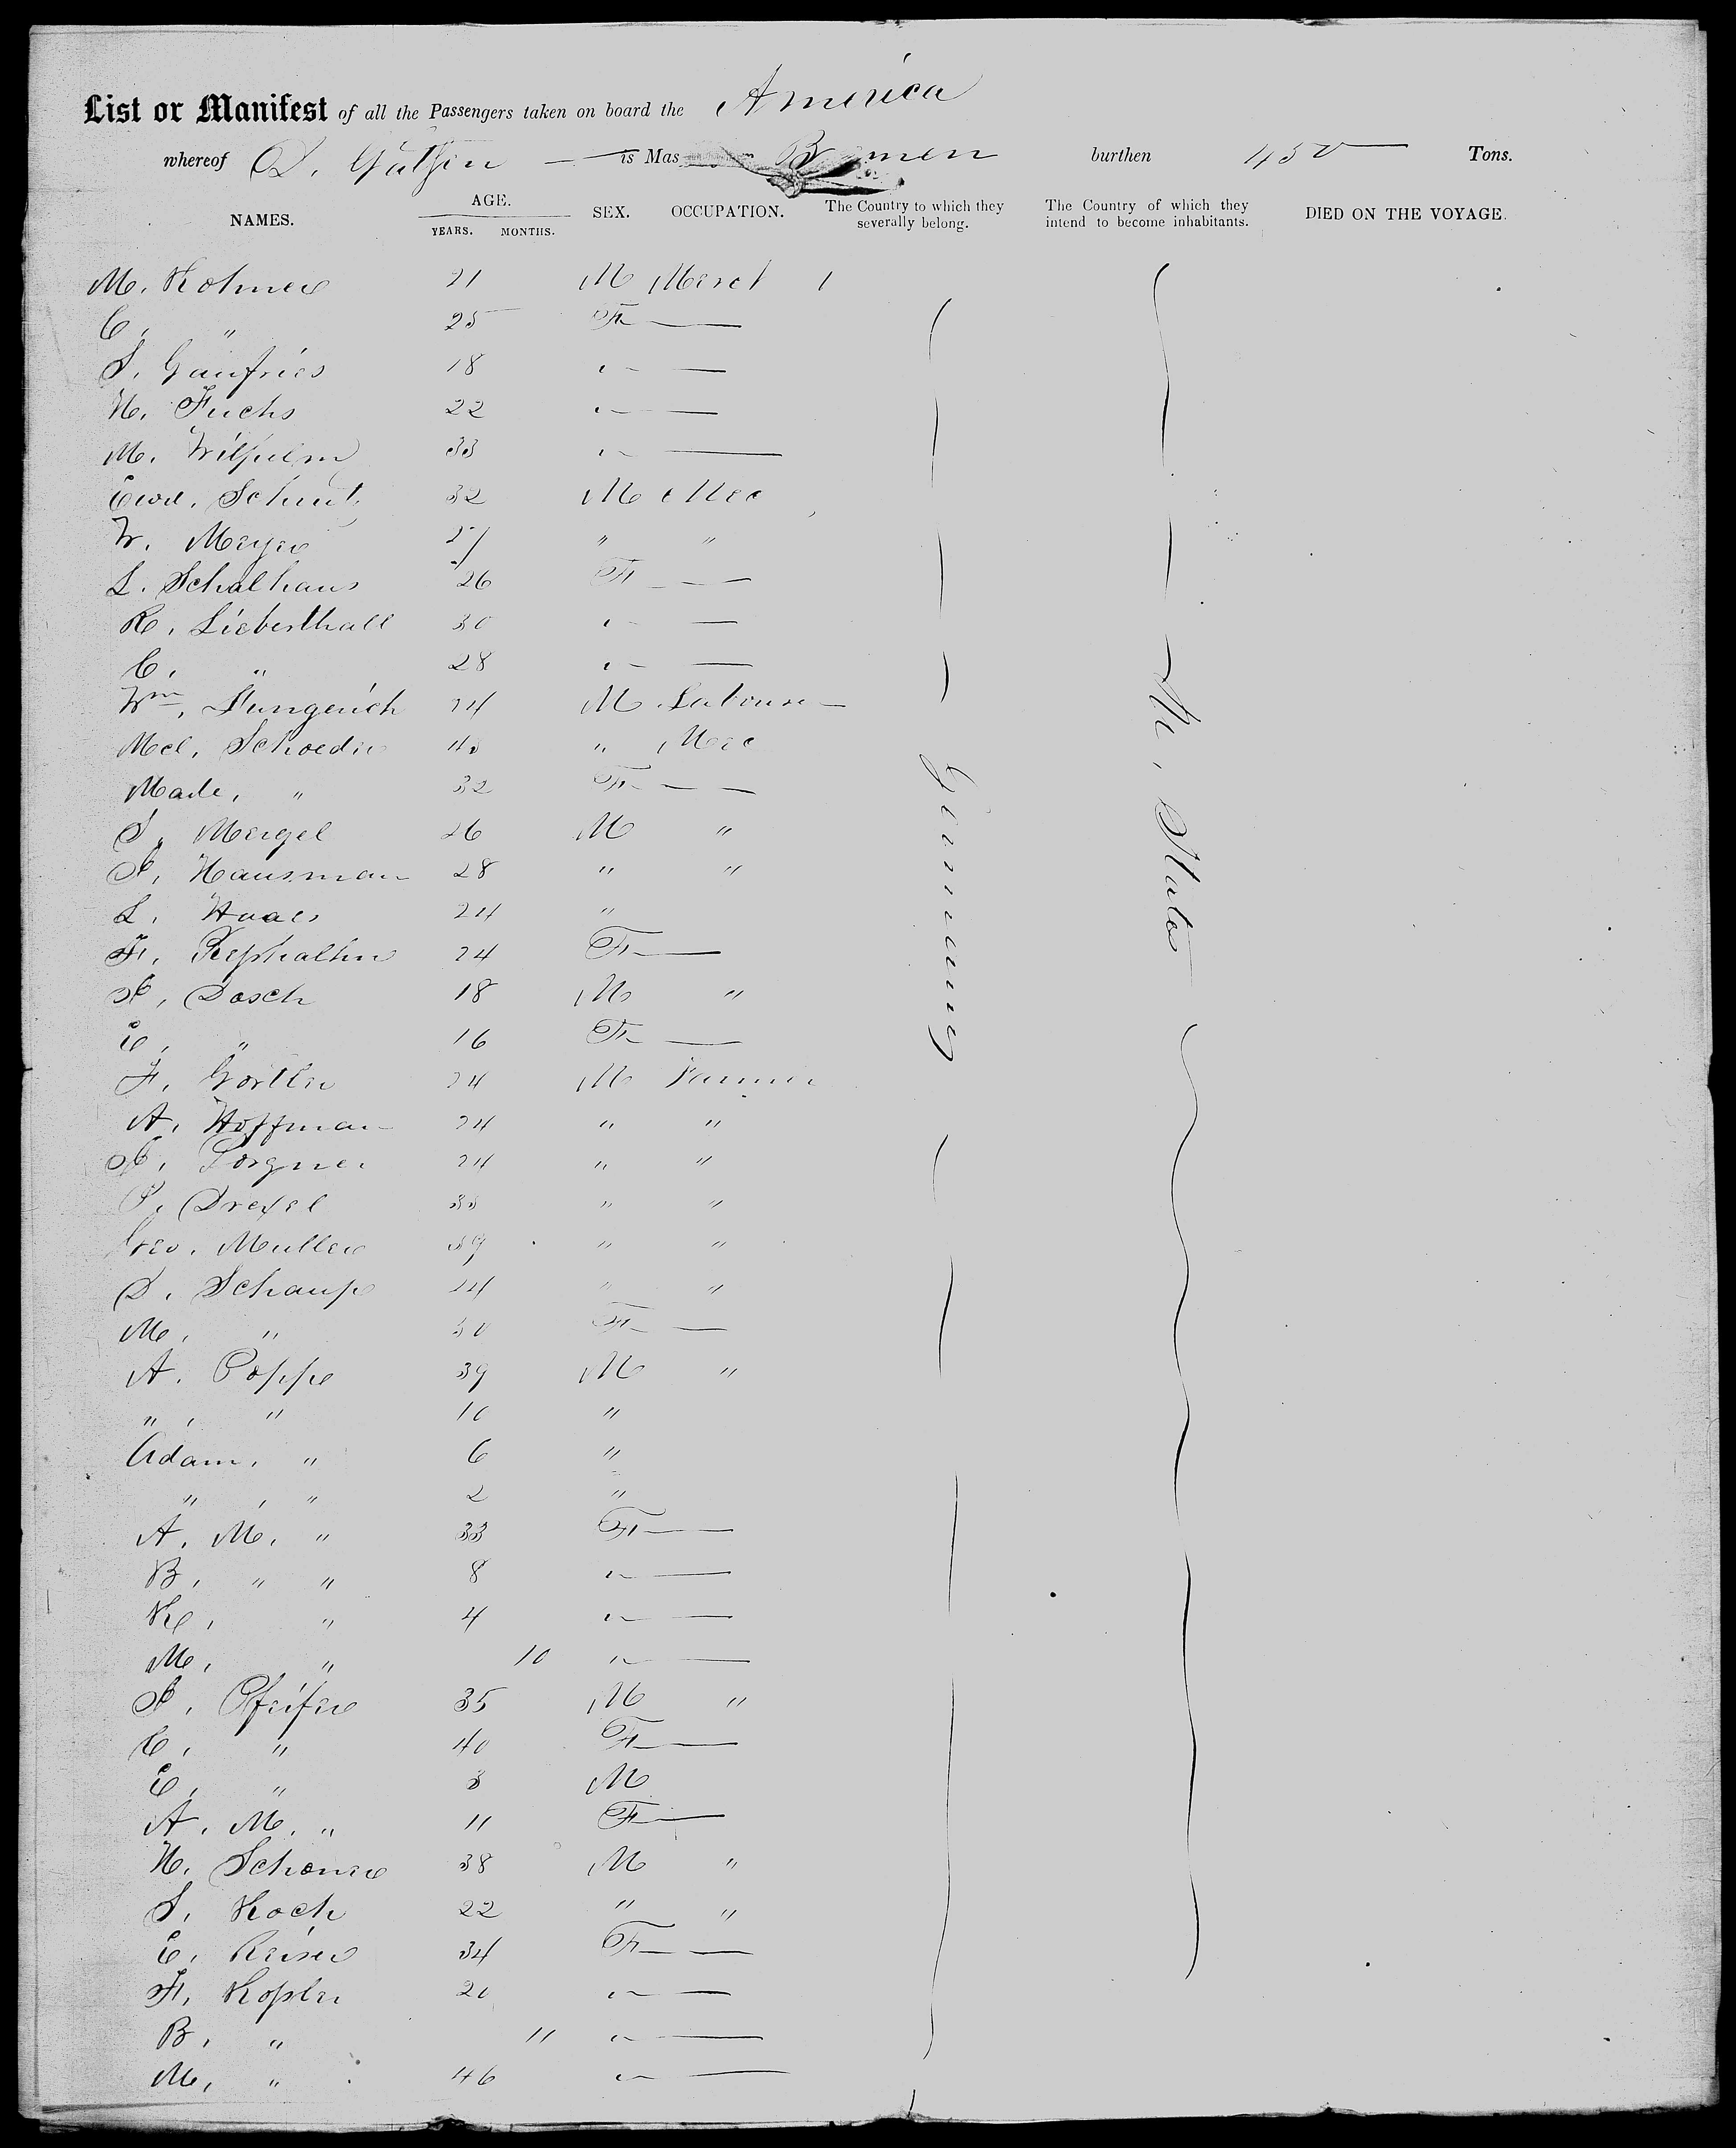 List or Manifest of all the Passengers taken on board the America
whereof D. is Mas Bremen burthen 450 Tons.
NAMES. AGE. YEARS. MONTHS. SEX. OCCUPATION. The Country to which they severally belong. The Country of which they intend to become inhabitants. DIED ON THE VOYAGE.
M. 21 M Merct
C. " 25 F —
S. 18 " —
H. Fuchs 22 " —
M. Wilhelm 33 " —
32 M Mec
W. Meyer 27 " "
L. Schalhaus 26 F —
R. Lieberthall 30 " —
C. " 28 " —
Wm. 24 M Labourer
Mel. Schoeder " Mec
Made. " 32 F —
S. Mergel 26 M "
J. Hausman 28 " "
L. Haaes 24 "
F. Kephalhn 24 F —
J. Dosch 18 M "
E. " 16 F —
F. 24 M Farmer
A. Hoffman 24 " "
24 " "
P. Drexel 33 " "
Geo. Muller 39 " "
D. Schaup 24 " "
M. " 30 F —
A. Poppe 39 M "
" , " 10 "
Adam. " 6 "
" , " 2 "
A. M. " 33 F —
B. " " 8 " —
K. " 4 " —
M. " 10 " —
J. Pfeifer 35 M "
C. " 40 F —
E. " 3 M
A. M. " 11 F —
H. Schoner 38 M "
S. Koch 22 " "
E. Reiser 34 F —
F. Kopler 20 " —
B. " 11 " —
M. " 46 " —
Germany
U. States